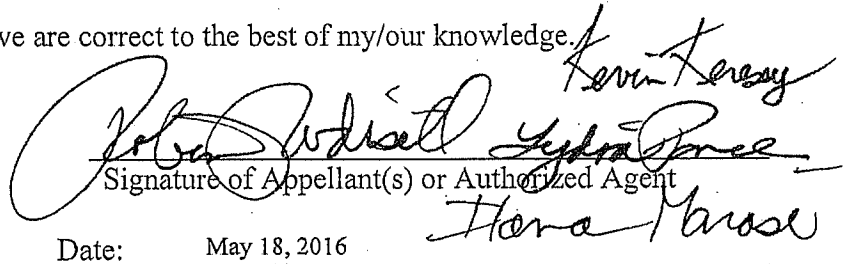 ve are correct to the best of my/our knowledge.
Kevin Keresey
Lydia Ponce
Signature of Appellant(s) or Authorized Agent
Ilana Marosi
Date: May 18, 2016